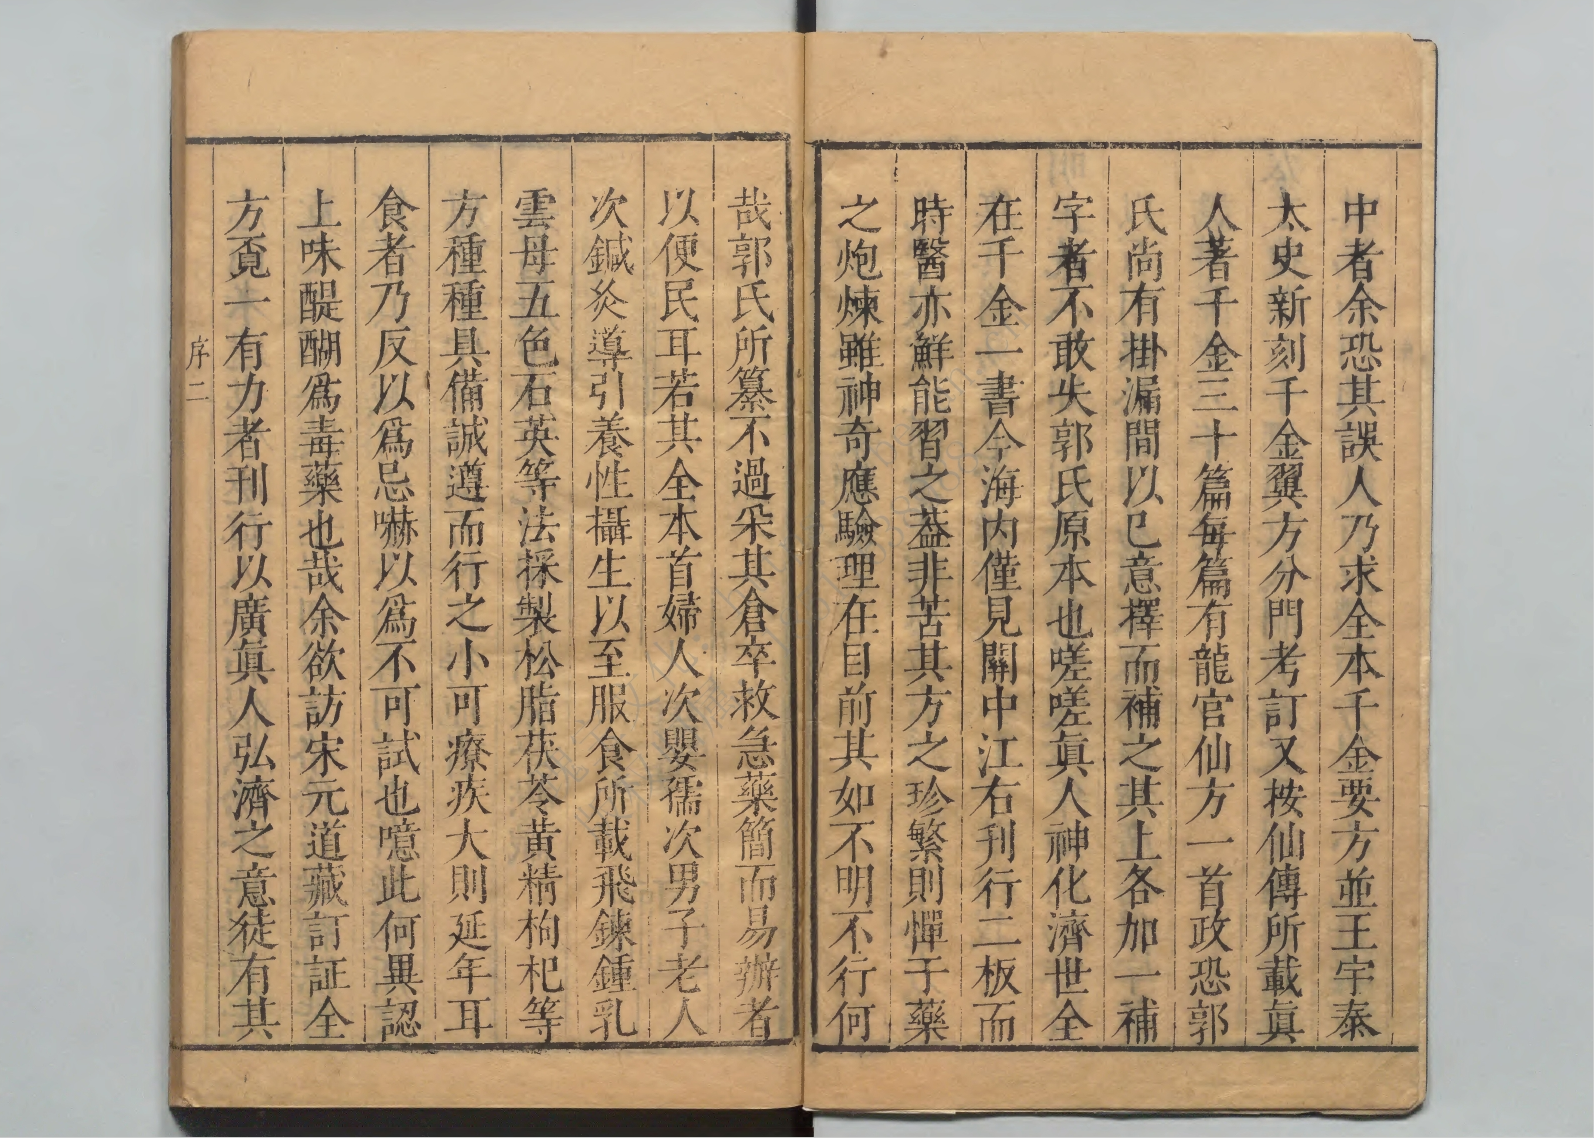 中者余恐其誤人乃求全本千金要方並王宇泰
太史新刻千金翼方分門考訂又桉仙傳所載眞
人著千金三十篇每篇有龍宮仙方一首政恐郭
氏尚有掛漏間以已意擇而補之其上各加一補
字者不敢失郭氏原本也嗟嗟眞人神化濟世全
在千金一書今海内僅見關中江右刊行二板而
時醫亦鮮能習之葢非苦其方之珍繁則憚于藥
之炮煉雖神奇應驗理在目前其如不明不行何
哉郭氏所纂不過采其倉卒救急藥簡而易辦者
以便民耳若其全本首婦人次嬰孺次男子老人
次鍼灸導引養性攝生以至服食所載飛鍊鍾乳
雲母五色石英等法採製松脂茯苓黃精枸杞等
方種種具備誠遵而行之小可療疾大則延年耳
食者乃反以爲忌嚇以爲不可試也噫此何異認
上味醍醐爲毒藥也哉余欲訪宋元道藏訂証全
方覔一有力者刊行以廣眞人弘濟之意徒有其
序二